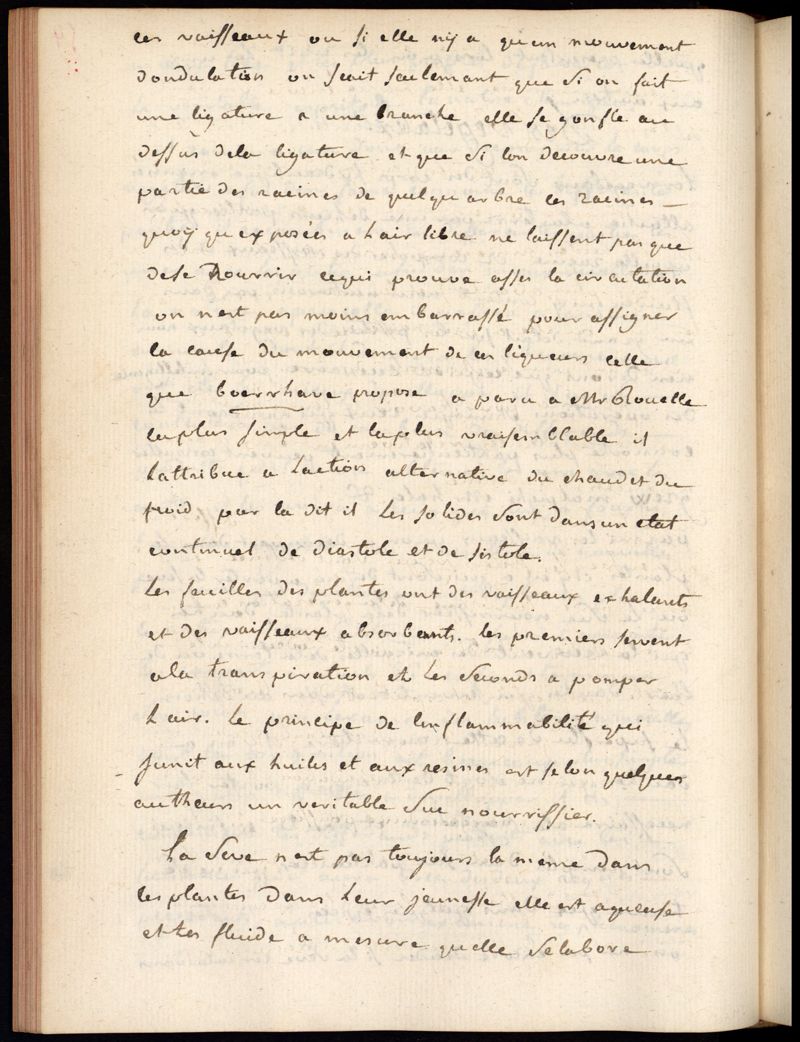 ces vaisseaux ou si elle ny a qu'un mouvement
dondulation on scait seulemant que si on fait
une ligature a une branche elle se gonfle au
dessus dela ligature et que si lon decouvre une
partie des racines de quelqu arbre ces racines —
quoÿ qu exposées a Lair libre ne laissent pas que
dese Nourrir cequi prouve asses la circulation
on nest pas moins embarrassé pour assigner
la cause du mouvement de ces liqueurs celle
que boerrhave propose a paru a Mr Rouelle
laplus simple et laplus vraisemblable il
Lattribue a Laction alternative du chaud et du
froid, par la dit il Les solides sont dans un etat
continuel de diastole et de sistole.
Les feuilles des plantes ont des vaisseaux exhalants
et des vaisseaux absorbants. les premiers servent
ala transpiration et Les seconds a pomper
Lair. Le principe de linflammabilité qui
sunit aux huiles et aux resines est selon quelques
autheurs un veritable suc nourrissier.
La seve nest pas toujours la meme dans
les plantes dans Leur jeunesse elle est aqueuse
et tes fluide a mesure quelle selabore